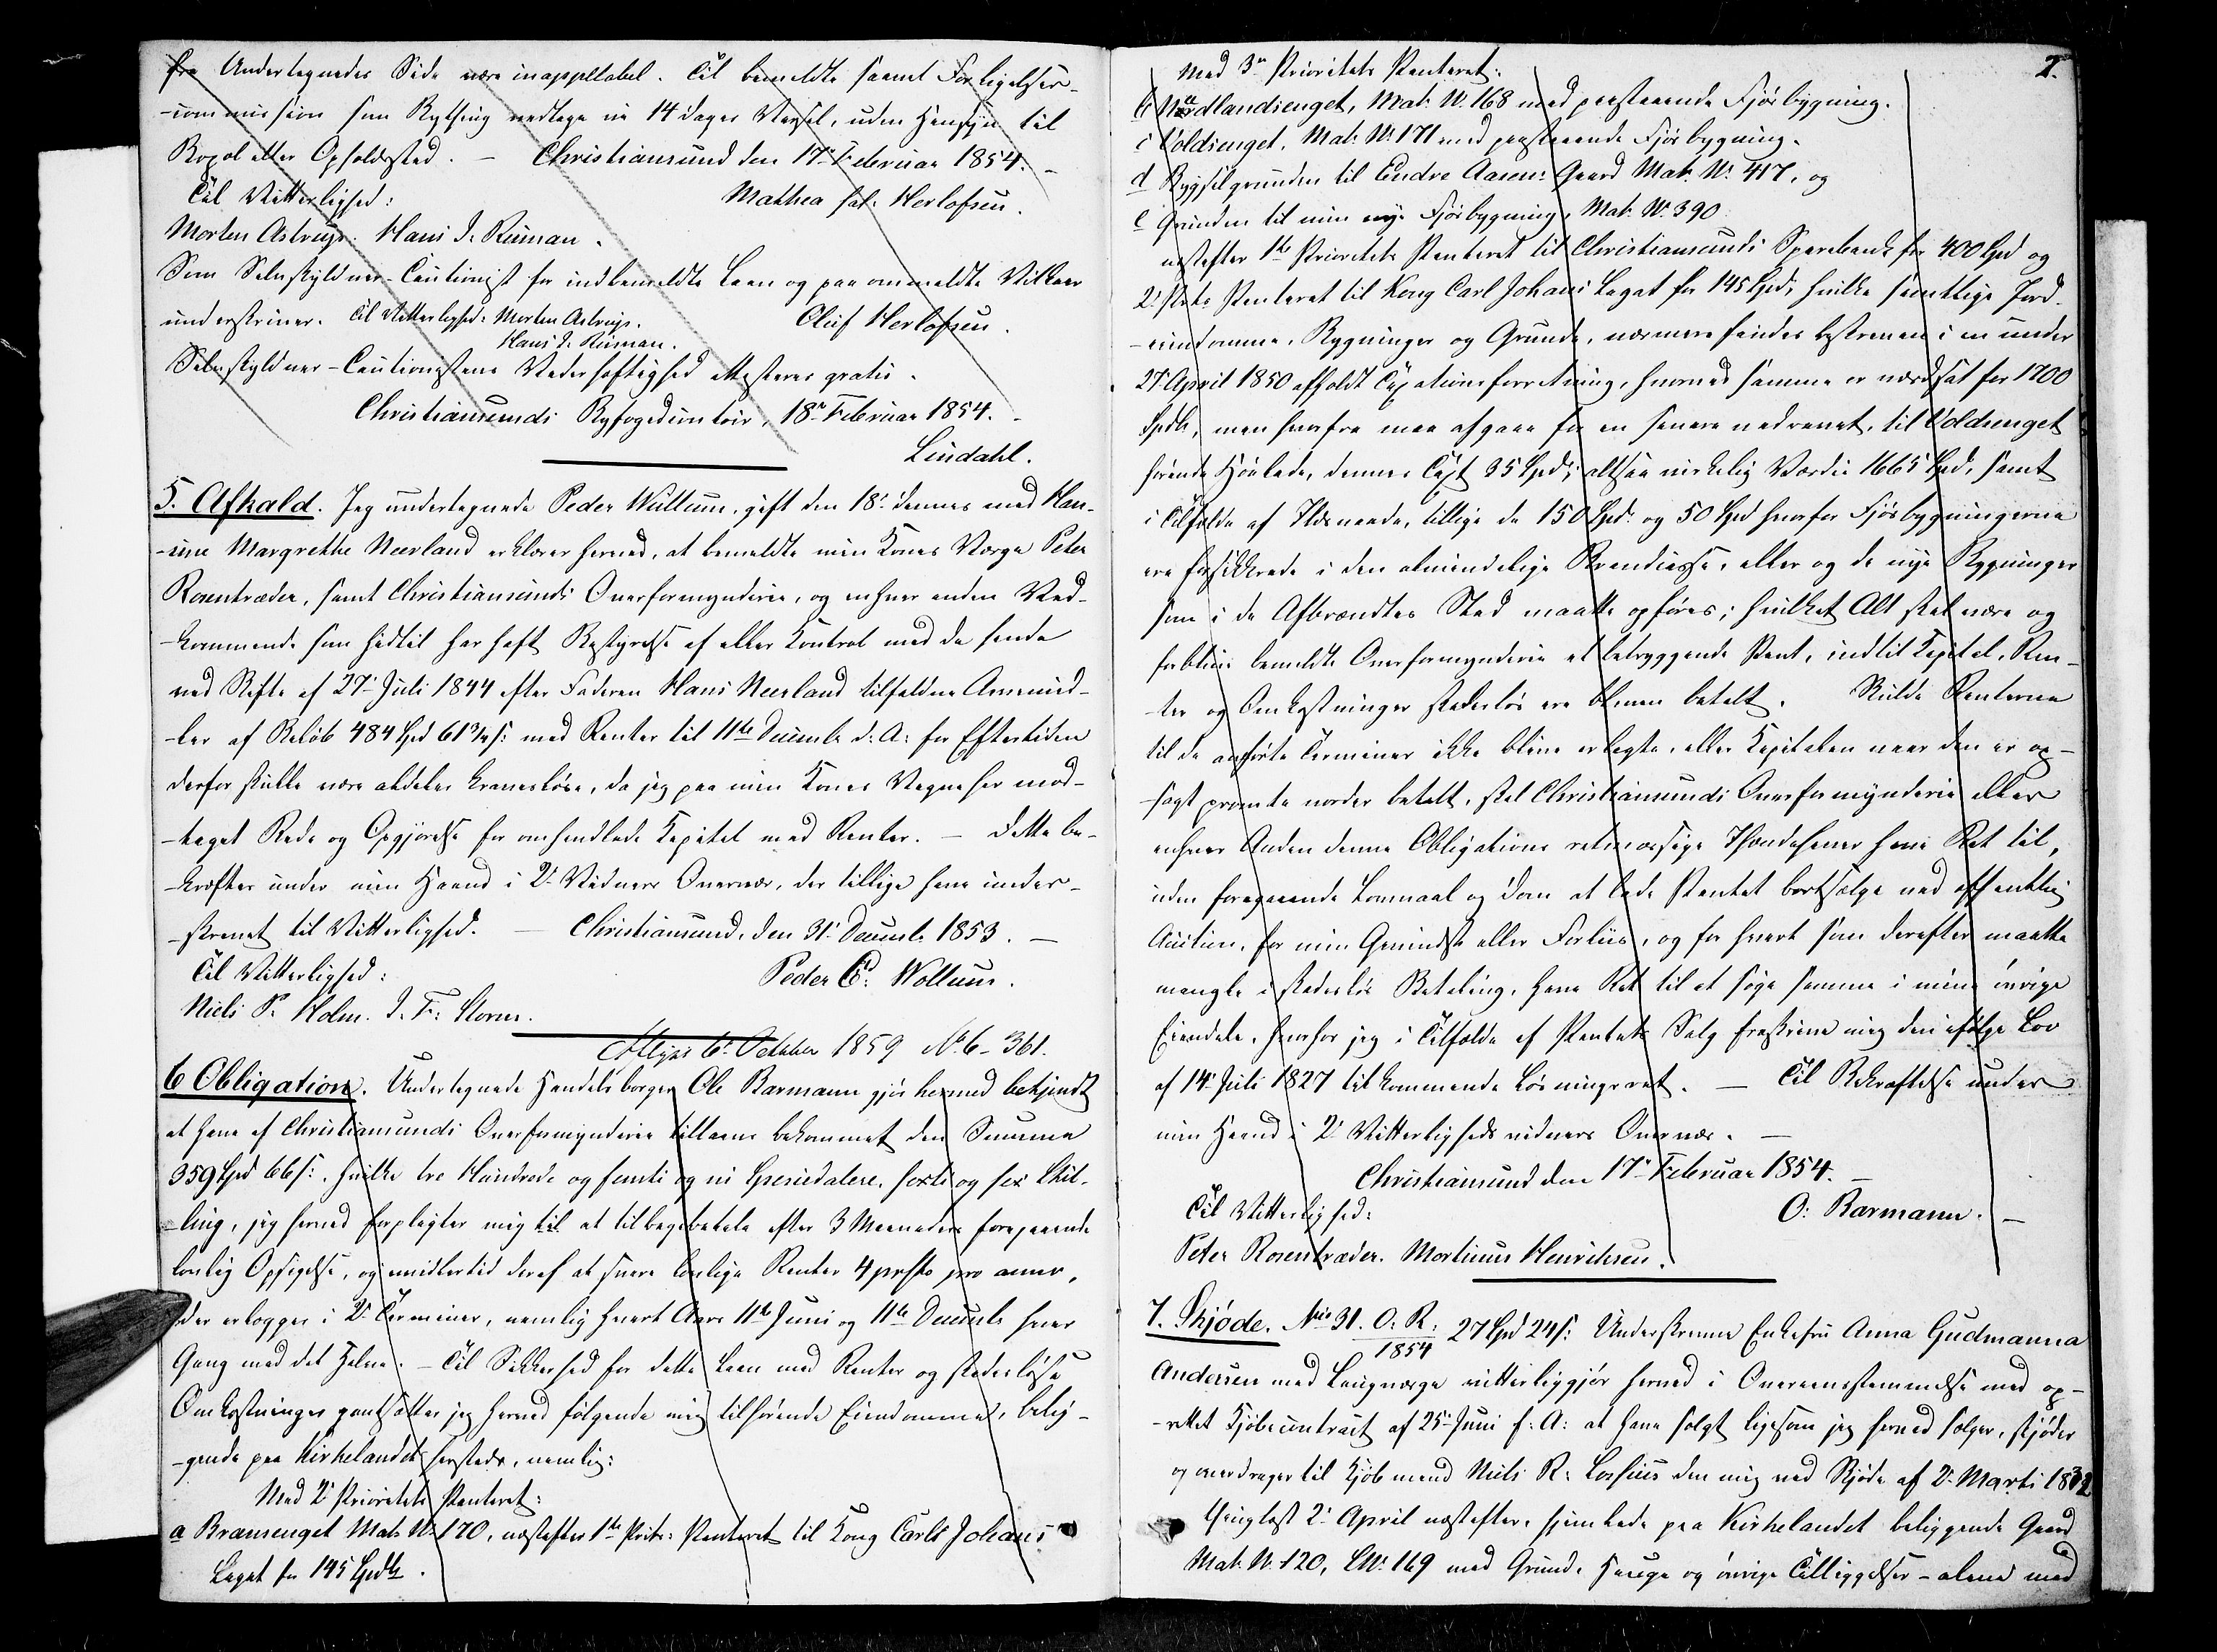 fra Undertegnedes Side være inappellabel. Til bemeldte saavel Forligelses-
-commission som Bything vedtages en 14 Dages Varsel, uden Hensyn til
Bopæl eller Opholdssted. — Christiansund den 17de Februar 1854. —
Til Vitterlighed: Mathea sal. Herlofsen.
Morten Astrup. Hans J. Riiman.
Som Selvskyldner-Cautionist for indbemeldte Laan og paa ommeldte Vilkaar
underskriver. Til Vitterlighed: Morten Astrup. Oluf Herlofsen.
Hans J. Riiman.
Selvskyldner-Cautionistens Vederhæftighed attesteres gratis.
Christiansunds Byfogedcontoir, 18de Februar 1854. —
Lindahl.
5. Afkald. Jeg undertegnede Peder Wullum, gift den 18de dennes med Han-
-sine Margrethe Neerland erklærer herved, at bemeldte min Kones Værge Peter
Rosentræder, samt Christiansunds Overformynderie, og enhver anden Ved-
-kommende som hidtil har haft Bestyrelse af eller Kontrol med de hende
ved Skifte af 27de Juli 1844 efter Faderen Hans Neerland tilfaldne Arvemid-
-ler af Beløb 484 Spd 61¾ s: med Renter til 11te Decembr d: A: for Eftertiden
derfor skulle være aldeles kravesløse, da jeg paa min Kones Vegne har mod-
-taget Rede og Opgjørelse for omhandlede Kapital med Renter. — Dette be-
-kræfter under min Haand i 2de Vidners Overvær, der tillige have under-
-skrevet til Vitterlighed. — Christiansund, den 31de Decembr 1853. —
Til Vitterlighed: Peder E: Wollum.
Niels P. Holm. J. F. Storm.
Aflyst 6te October 1859 No. 6 - 361.
6 Obligation. Undertegnede Handelsborger Ole Barmann gjør hermed bekjendt
at have af Christiansunds Overformynderie tillaans bekommet den Summa
359 Spd 66 s:, hvilke tre Hundrede og femti og ni Speciedalere, sexti og sex Skil-
-ling, jeg herved forpligter mig til at tilbagebetale efter 3 Maaneders foregaaende
lovlig Opsigelse, og imidlertid deraf at svare lovlige Renter 4 prCto pro anno,
der erlægges i 2de Terminer, nemlig hvert Aars 11te Juni og 11te Decembr hver
Gang med det Halve. — Til Sikkerhed for dette Laan med Renter og skadesløse
Omkostninger pantsætter jeg herved følgende mig tilhørende Eiendomme, belig-
-gende paa Kirkelandet hersteds, nemlig:
Med 2de Prioritets Panteret:
a Bræmsenget Mat. No. 170, næstefter 1te Prits: Panteret til Kong Carls Johans
Legat for 145 Spdlr.
2.
Med 3die Prioritets Panteret:
b Nordlandsenget, Mat. No. 168 med paastaaende Fjøsbygning.
c Voldsenget, Mat. No. 171 med paastaaende Fjøsbygning.
d Bygselgrunden til Endre Aasens Gaard Mat. No. 417, og
e Grunden til min nye Fjøsbygning, Mat. No. 390
næstefter 1te Prioritets Panteret til Christiansunds Sparebank for 400 Spd og
2de Prits. Panteret til Kong Carl Johans Legat for 145 Spd, hvilke samtlige Jord-
-eiendomme, Bygninger og Grunde, nærmere findes beskreven i en under
27 April 1850 afholdt Taxationsforretning, hvorved samme er værdsat for 1700
Spdlr, men hvorfra maa afgaae for en senere nedrevet, til Voldsenget
hørende Høelade, dennes Taxt 35 Spd; altsaa virkelig Værdie 1665 Spd, samt
i Tilfælde af Ildsvaade, tillige de 150 Spd: og 50 Spd hvorfor Fjøsbygningerne
ere forsikkrede i den almindelige Brandcasse, eller og de nye Bygninger
som i de Afbrændtes Sted maatte opføres; hvilket Alt skal være og
forblive bemeldte Overformynderie et betryggende Pant, indtil Kapital, Ren-
-ter og Omkostninger skadesløs ere bleven betalt. Skulde Renterne
til de anførte Terminer ikke blive erlagte, eller Kapitalen naar den er op-
-sagt prompte vorder betalt, skal Christiansunds Overformynderie eller
enhver Anden denne Obligations retmæssige Ihændehaver have Ret til,
uden foregaaende Lovmaal og Dom at lade Pantet bortsælge ved offentlig
Auction, for min Gevindst eller Forliis, og for hvert som derefter maatte
mangle i skadesløs Betaling, have Ret til at søge samme i mine øvrige
Eiendele, hvorhos jeg i Tilfælde af Pantets Salg fraskriver mig den ifølge Lov
af 14de Juli 1827 tilkommende Løsningsret. — Til Bekræftelse under
min Haand i 2de Vitterligheds vidners Overvær. —
Christiansund den 17de Februar 1854. —
Til Vitterlighed: O: Barmann. —
Peter Rosentræder. Martinus Henriksen.
7. Skjøde. No 31. O: R: 27 Spd 24 s: Underskrevne Enkefru Anna Gudmanna
1854
Andersen med Laugværge vitterliggjør herved i Overeensstemmelse med op-
-rettet Kjøbecontract af 25de Juni f: A: at have solgt ligesom jeg herved sælger, skjøder
og overdrager til Kjøbmand Niels R: Lossius den mig ved Skjøde af 2de Marts 1832
thinglæst 2de April næstefter, hjemlede paa Kirkelandet beliggende Gaard
Mat. No. 120, LNo. 169 med Grund, Hauge og øvrige Tilliggelser - alene med